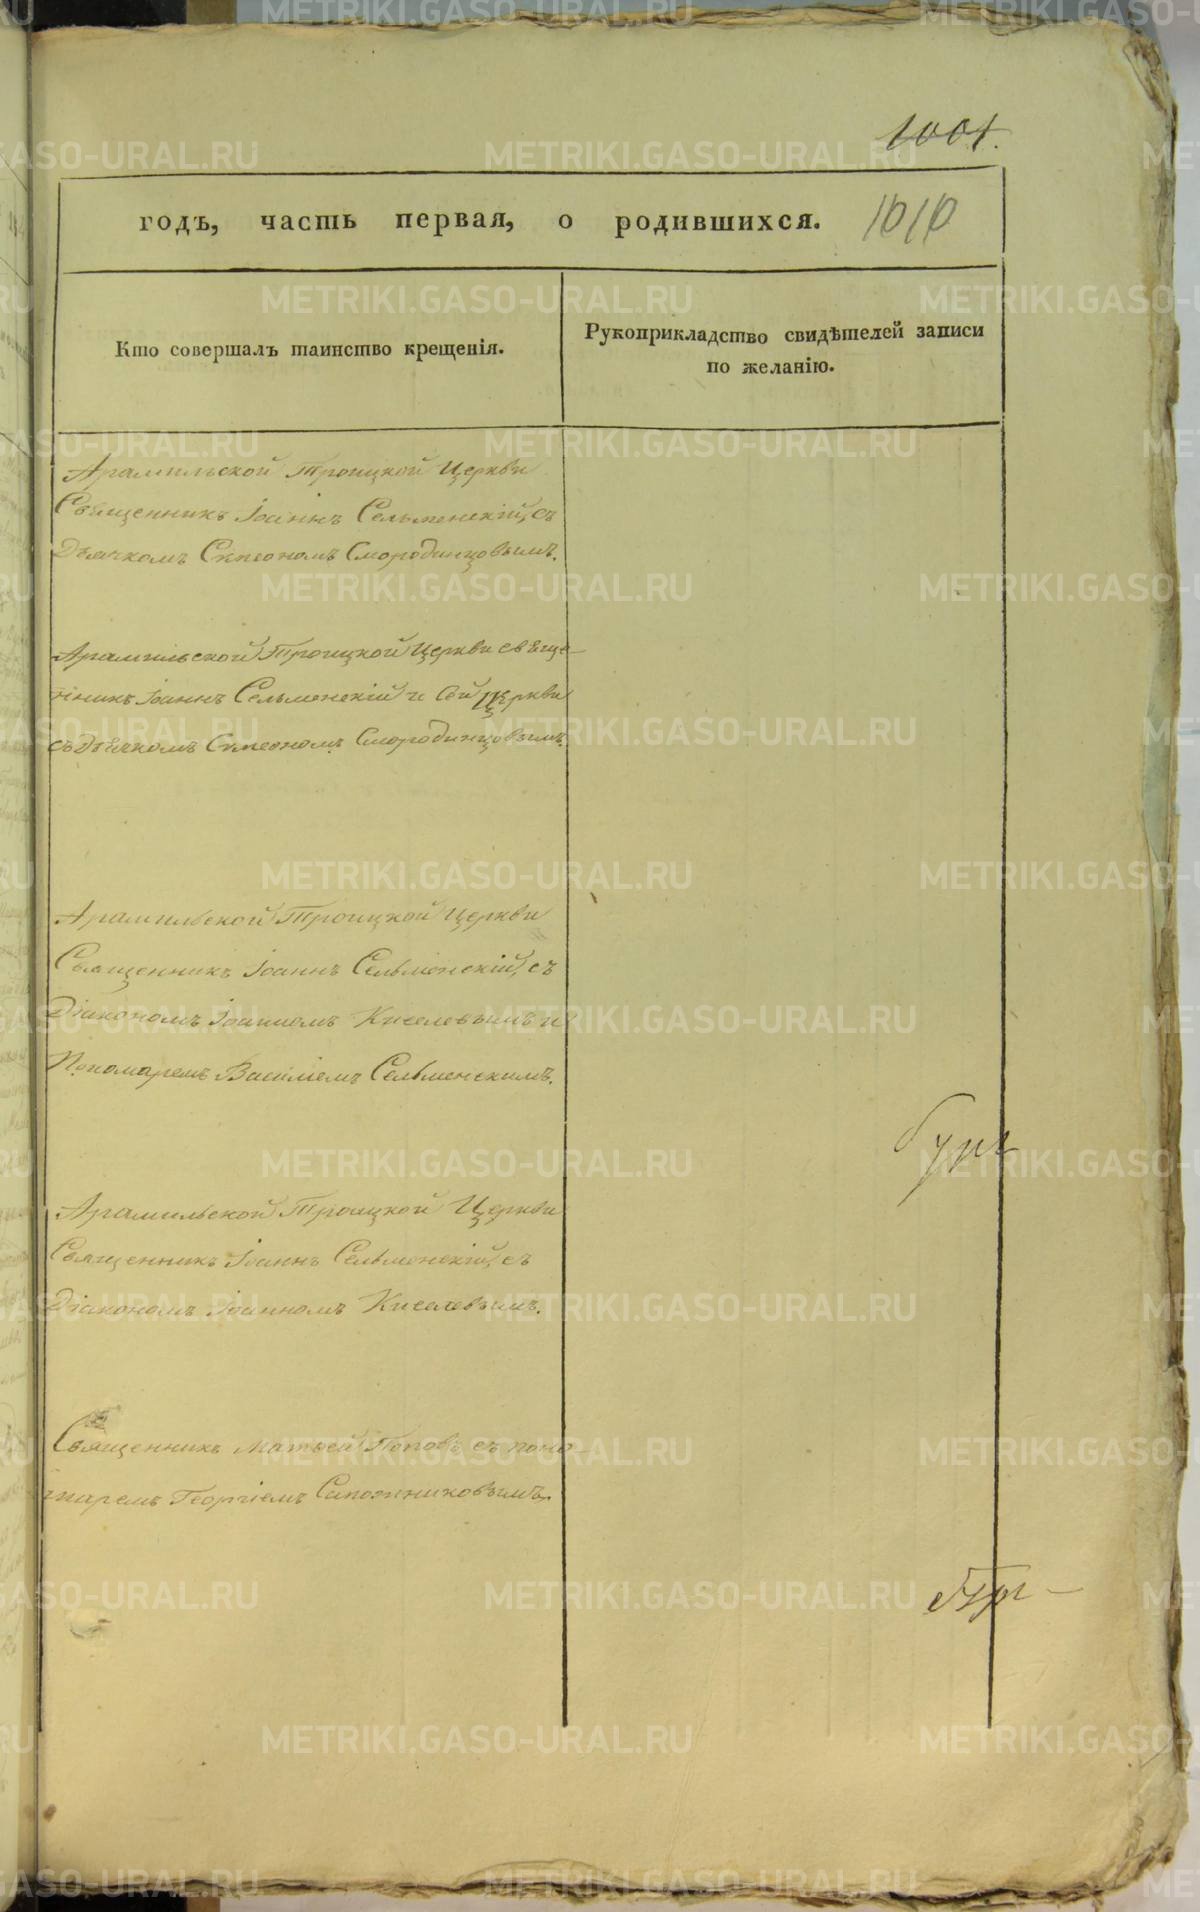 1001.
годъ, часть первая, о родившихся. 1010
Кто совершалъ таинство крещенія.
Рукоприкладство свидѣтелей записи
по желанію.
Арамильской Троицкой Церкви
Священникъ Іоаннъ Сельменскій, съ
Дьячкомъ Симеономъ Смородинцовымъ.
Арамильской Троицкой Церкви свяще-
нникъ Іоаннъ Сельменскій и Сей Церкви
съ Дьячкомъ Симеономъ Смородинцовымъ.
Арамильской Троицкой Церкви
Священникъ Іоаннъ Сельменскій, съ
Діакономъ Іоанномъ Киселевымъ и
Пономаремъ Василіемъ Сельменскимъ.
Арамильской Троицкой Церкви
Священникъ Іоаннъ Сельменскій, съ
Діакономъ Іоанномъ Киселевымъ.
Священникъ Матѳей Поповъ съ поно-
маремъ Георгіемъ Сапожниковымъ.
METRIKI.GASO-URAL.RU